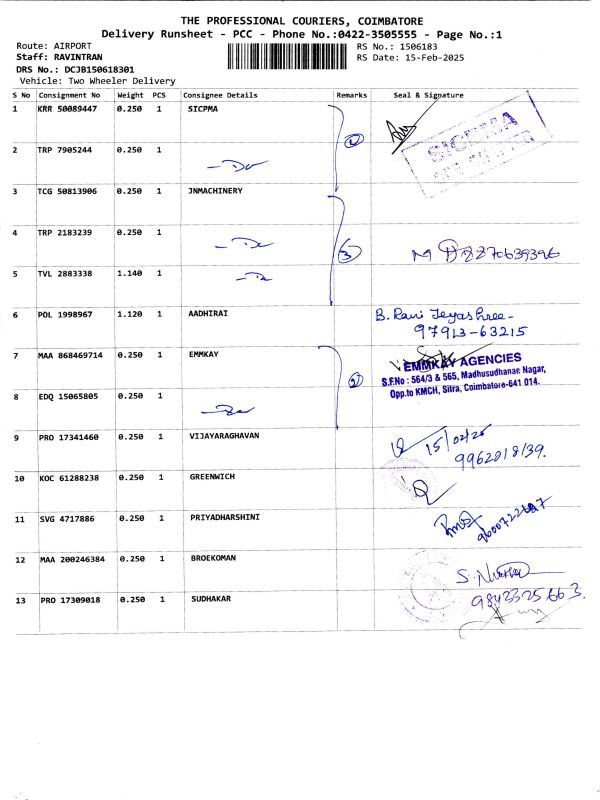 THE PROFESSIONAL COURIERS, COIMBATORE
Delivery Runsheet - PCC - Phone No.:0422-3505555 - Page No.:1
Route: AIRPORT
Staff: RAVINTRAN
DRS No.: DCJB150618301
Vehicle: Two Wheeler Delivery
RS No.: 1506183
RS Date: 15-Feb-2025
S No Consignment No Weight PCS Consignee Details Remarks Seal & Signature
1 KRR 50089447 0.250 1 SICPMA
2 TRP 7905244 0.250 1
3 TCG 50813906 0.250 1 JNMACHINERY
4 TRP 2183239 0.250 1
5 TVL 2883338 1.140 1
6 POL 1998967 1.120 1 AADHIRAI B. Rani Jeyashree-
97913-63215
7 MAA 868469714 0.250 1 EMMKAY EMMKAY AGENCIES
S.F.No : 564/3 & 565, Madhusudhanar Nagar,
Opp.to KMCH, Sitra, Coimbatore-641 014.
8 EDQ 15065805 0.250 1
9 PRO 17341460 0.250 1 VIJAYARAGHAVAN 15/02/25
9962018139.
10 KOC 61288238 0.250 1 GREENWICH
11 SVG 4717886 0.250 1 PRIYADHARSHINI
12 MAA 200246384 0.250 1 BROEKOMAN
13 PRO 17309018 0.250 1 SUDHAKAR